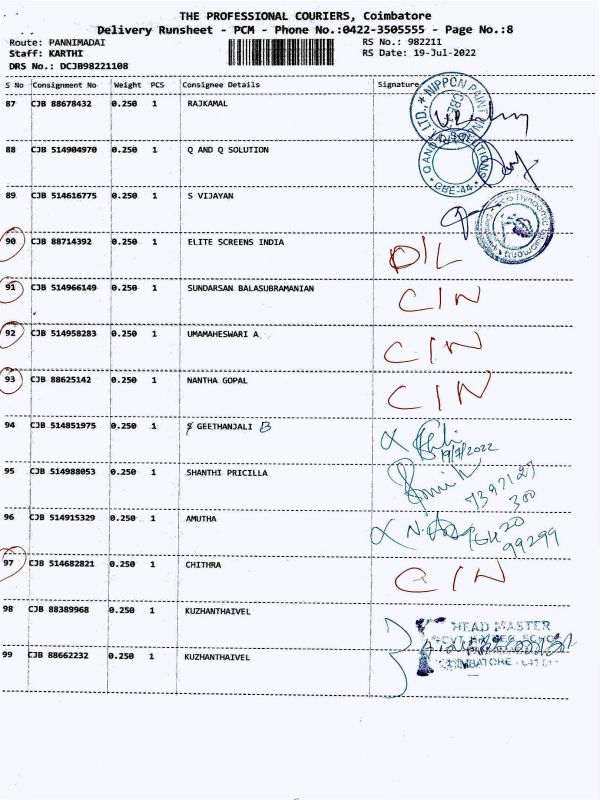 THE PROFESSIONAL COURIERS, Coimbatore
Delivery Runsheet - PCM - Phone No.:0422-3505555 - Page No.:8
Route: PANNIMADAI
RS No.: 982211
Staff: KARTHI
RS Date: 19-Jul-2022
DRS No.: DCJB98221108
S No Consignment No Weight PCS Consignee Details Signature
87 CJB 88678432 0.250 1 RAJKAMAL
NIPPON PAINT
LTD., CBE
88 CJB 514904970 0.250 1 Q AND Q SOLUTION
Q AND Q SOLUTIONS
CBE-44
89 CJB 514616775 0.250 1 S VIJAYAN
90 CJB 88714392 0.250 1 ELITE SCREENS INDIA D/L
91 CJB 514966149 0.250 1 SUNDARSAN BALASUBRAMANIAN C/N
92 CJB 514958283 0.250 1 UMAMAHESWARI A C/N
93 CJB 88625142 0.250 1 NANTHA GOPAL C/N
94 CJB 514851975 0.250 1 GEETHANJALI B
19/7/2022
95 CJB 514988053 0.250 1 SHANTHI PRICILLA
7397127
300
96 CJB 514915329 0.250 1 AMUTHA
99299
97 CJB 514682821 0.250 1 CHITHRA C/N
98 CJB 88389968 0.250 1 KUZHANTHAIVEL
HEAD MASTER
COIMBATORE
99 CJB 88662232 0.250 1 KUZHANTHAIVEL